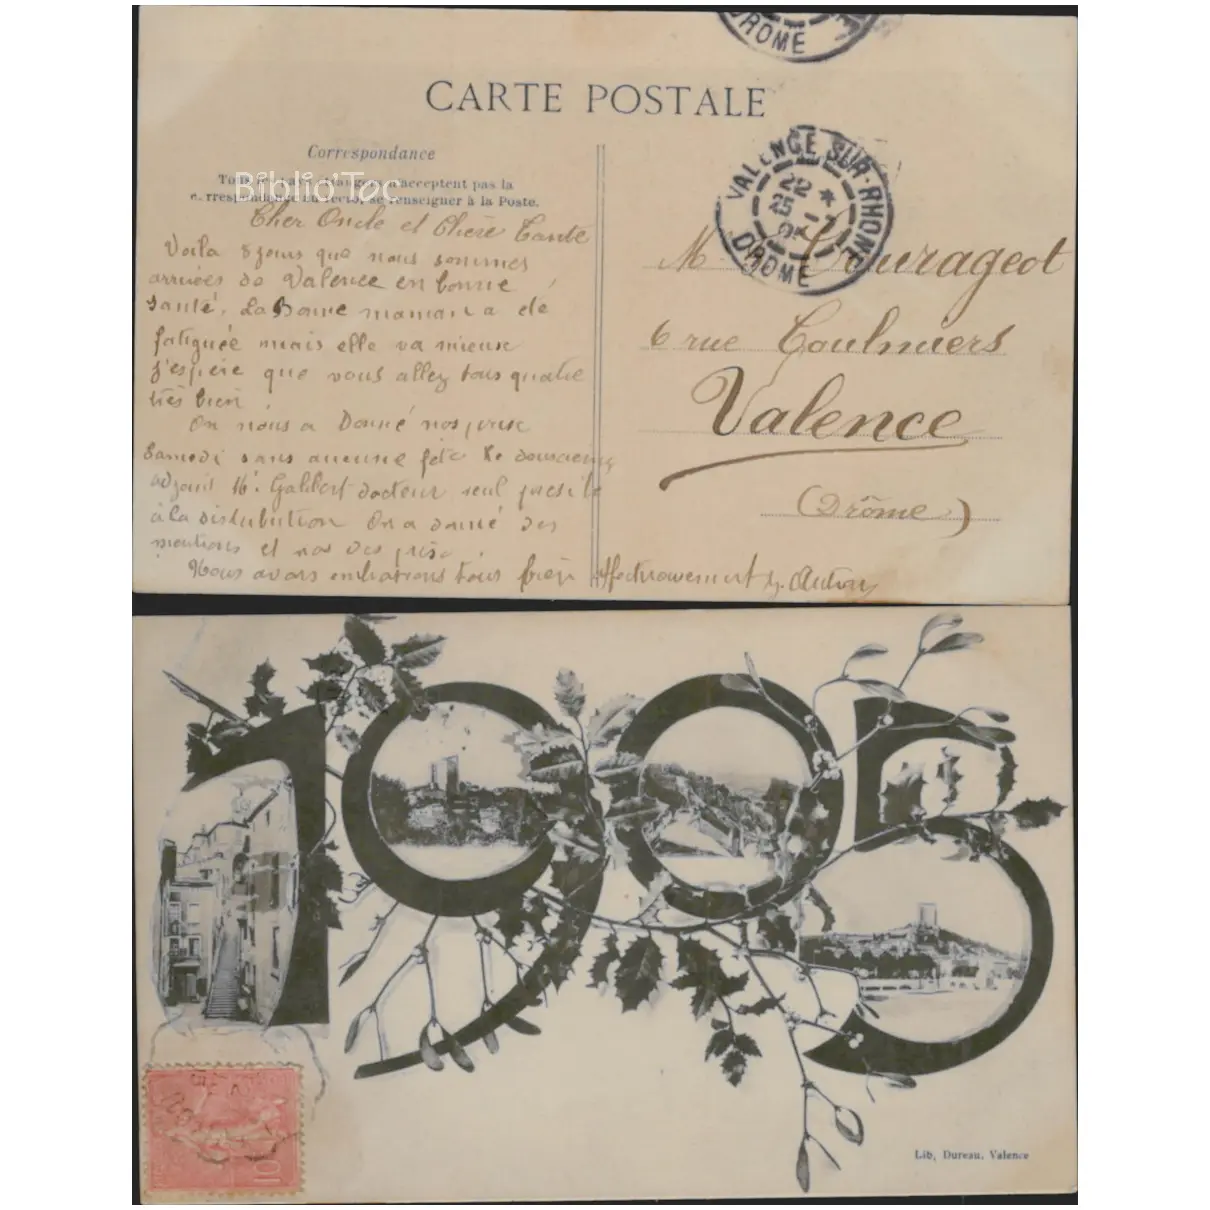 DROME
CARTE POSTALE
Correspondance
Biblio'Tac
Tous les pays étrangers n'acceptent pas la
correspondance au recto, se renseigner à la Poste.
VALENCE SUR-RHONE
22
DROME
Cher Oncle et Chère Tante
Voila 8 jours que nous sommes
arrivées de Valence en bonne
santé. La Bonne maman a été
fatiguée mais elle va mieux
j'espère que vous allez tous quatre
très bien
On nous a Donné nos prix
Samedi sans aucune fête le
adjoint Mr. Galibert docteur seul
à la distribution On a donné des
mentions et non des prix.
Nous vous embrassons tous bien Affectueusement
M Courageot
6 rue Coulmiers
Valence
(Drôme)
1905
10
Lib. Dureau. Valence